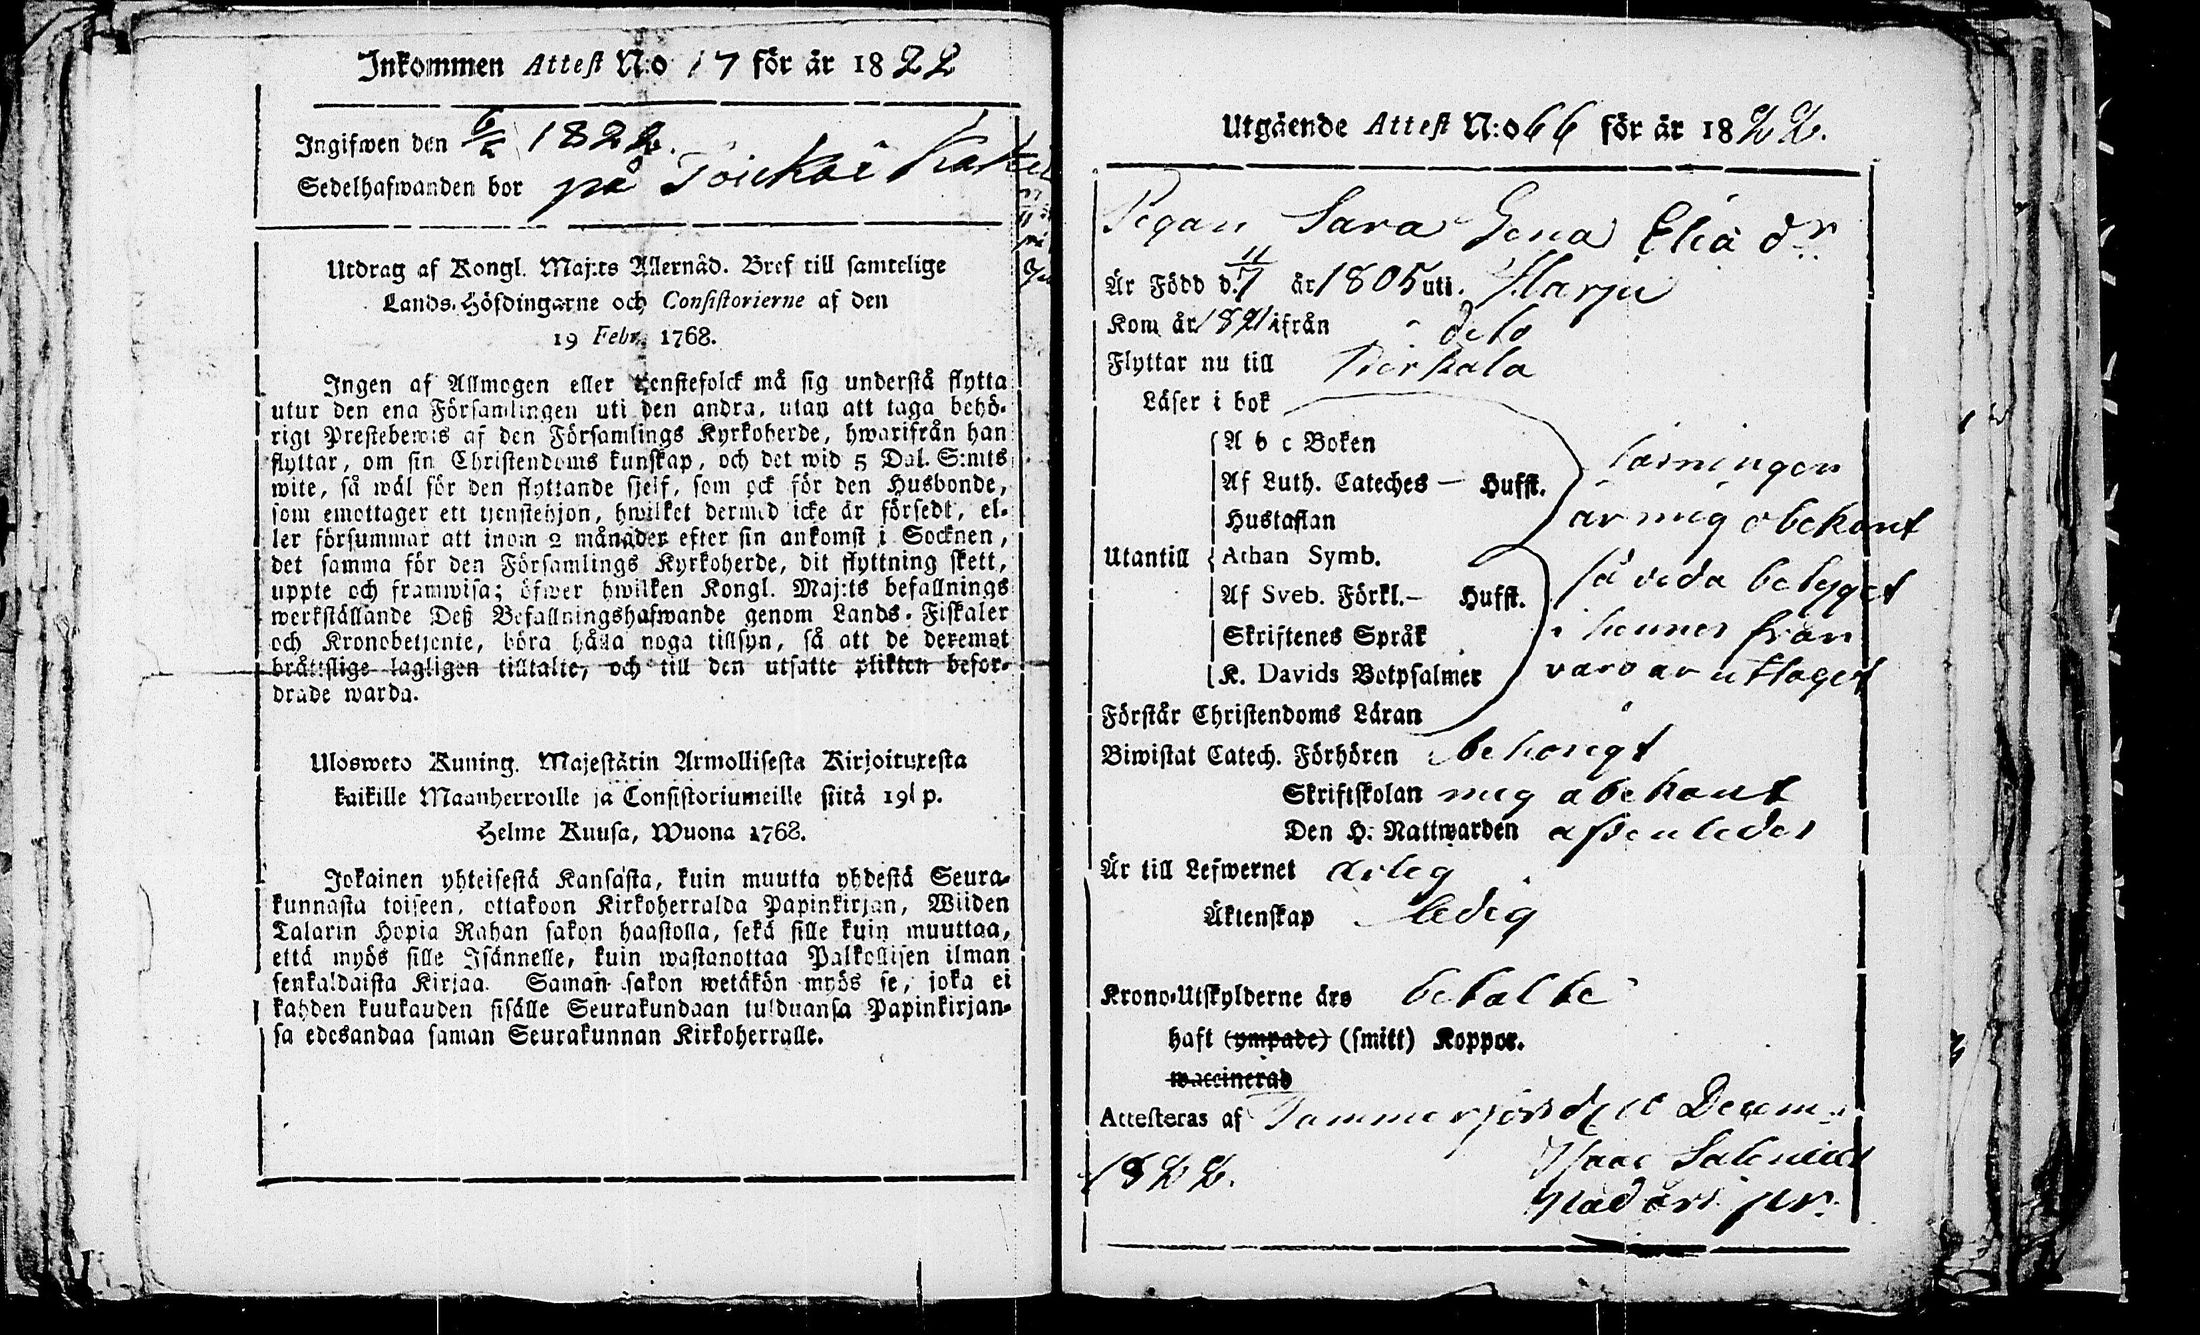 Inkommen Attest N:o 17 för år 1822
Ingifwen den 6/2 1822.
Sedelhafwanden bor på
Utdrag af Kongl. Maj:ts Allernåd. Bref till samtelige
Lands-Höfdingarne och Consistorierne af den
19 Febr. 1768.
Ingen af Allmogen eller tjenstefolck må sig understå flytta
utur den ena Församlingen uti den andra, utan att taga behö-
rigt Prestebewis af den Församlings Kyrkoherde, hwarifrån han
flyttar, om sin Christendoms kunskap, och det wid 5 Dal. S:mts
wite, så wäl för den flyttande sjelf, som ock för den Husbonde,
som emottager ett tjenstehjon, hwilket dermed icke är försedt, el-
ler försummar att inom 2 månader efter sin ankomst i Socknen,
det samma för den Församlings Kyrkoherde, dit flyttning skett,
uppte och framwisa; öfwer hwilken Kongl. Maj:ts befallnings
werkställande Deß Befallningshafwande genom Lands-Fiskaler
och Kronobetjente, böra hålla noga tillsyn, så att de deremot
bråttslige lagligen tilltalte, och till den utsatte plikten befor-
drade warda.
Ulosweto Kuning. Majestätin Armollisesta Kirjoituxesta
kaikille Maanherroille ja Consistoriumeille siitä 19 p.
Helme Kuusa, Wuona 1768.
Jokainen yhteisestä Kansasta, kuin muutta yhdestä Seura-
kunnasta toiseen, ottakoon Kirkoherralda Papinkirjan, Wiiden
Talarin Hopia Rahan sakon haastolla, sekä sille kuin muuttaa,
että myös sille Isännelle, kuin wastanottaa Palkollisen ilman
senkaldaista Kirjaa. Saman sakon wetäkön myös se, joka ei
kahden kuukauden sisälle Seurakundaan tulduansa Papinkirjan-
sa edesandaa saman Seurakunnan Kirkoherralle.
Utgående Attest N:o 66 för år 1822.
Pigan Sara Lena Elia dr
Är Född d. 11/7 år 1805 uti Harju
Kom år 1821 ifrån dito
Flyttar nu till Birkala
Läser i bok
A b c Boken
Af Luth. Cateches — Hufst.
Hustaflan
Utantill Athan Symb.
Af Sveb. Förkl. — Hufst.
Skriftenes Språk
K. Davids Botpsalmer
Förstår Christendoms Läran
läsningen
är mig obekant
så vida betyget
i hennes från
varo är uttaget
Biwistat Catech. Förhören behörigt
Skriftskolan mig obekant
Den H. Nattwarden
Är till Lefwernet ärlig
Äktenskap ledig
Krono-Utskylderne äro betalte
haft (ympade) (smitt) Koppor.
waccinerad
Attesteras af Tammerfors d. 10 Decem.
1822.
Isaac Salenius